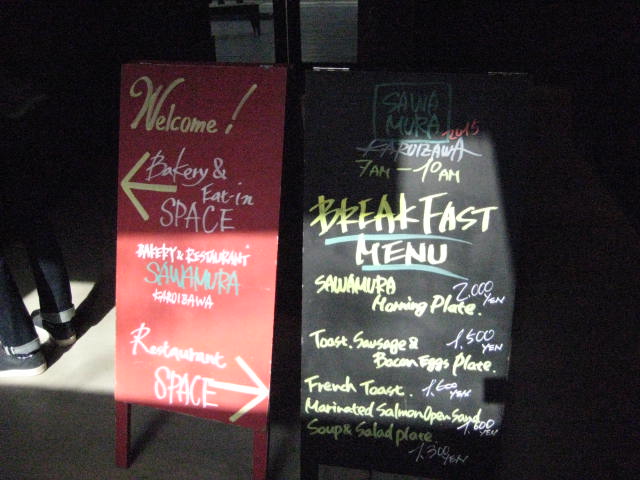 Welcome!
Bakery &
Eat-in
SPACE
BAKERY & RESTAURANT
SAWAMURA
KARUIZAWA
Restaurant
SPACE
SAWA
MURA
2015
KARUIZAWA
7AM - 10AM
BREAKFAST
MENU
SAWAMURA 2,000
Morning Plate. YEN
Toast. Sausage & 1,500
Bacon Eggs Plate. YEN
French Toast. 1,600 YEN
Marinated Salmon Open Sand
Soup & Salad plate 1,600 YEN
1,300 YEN